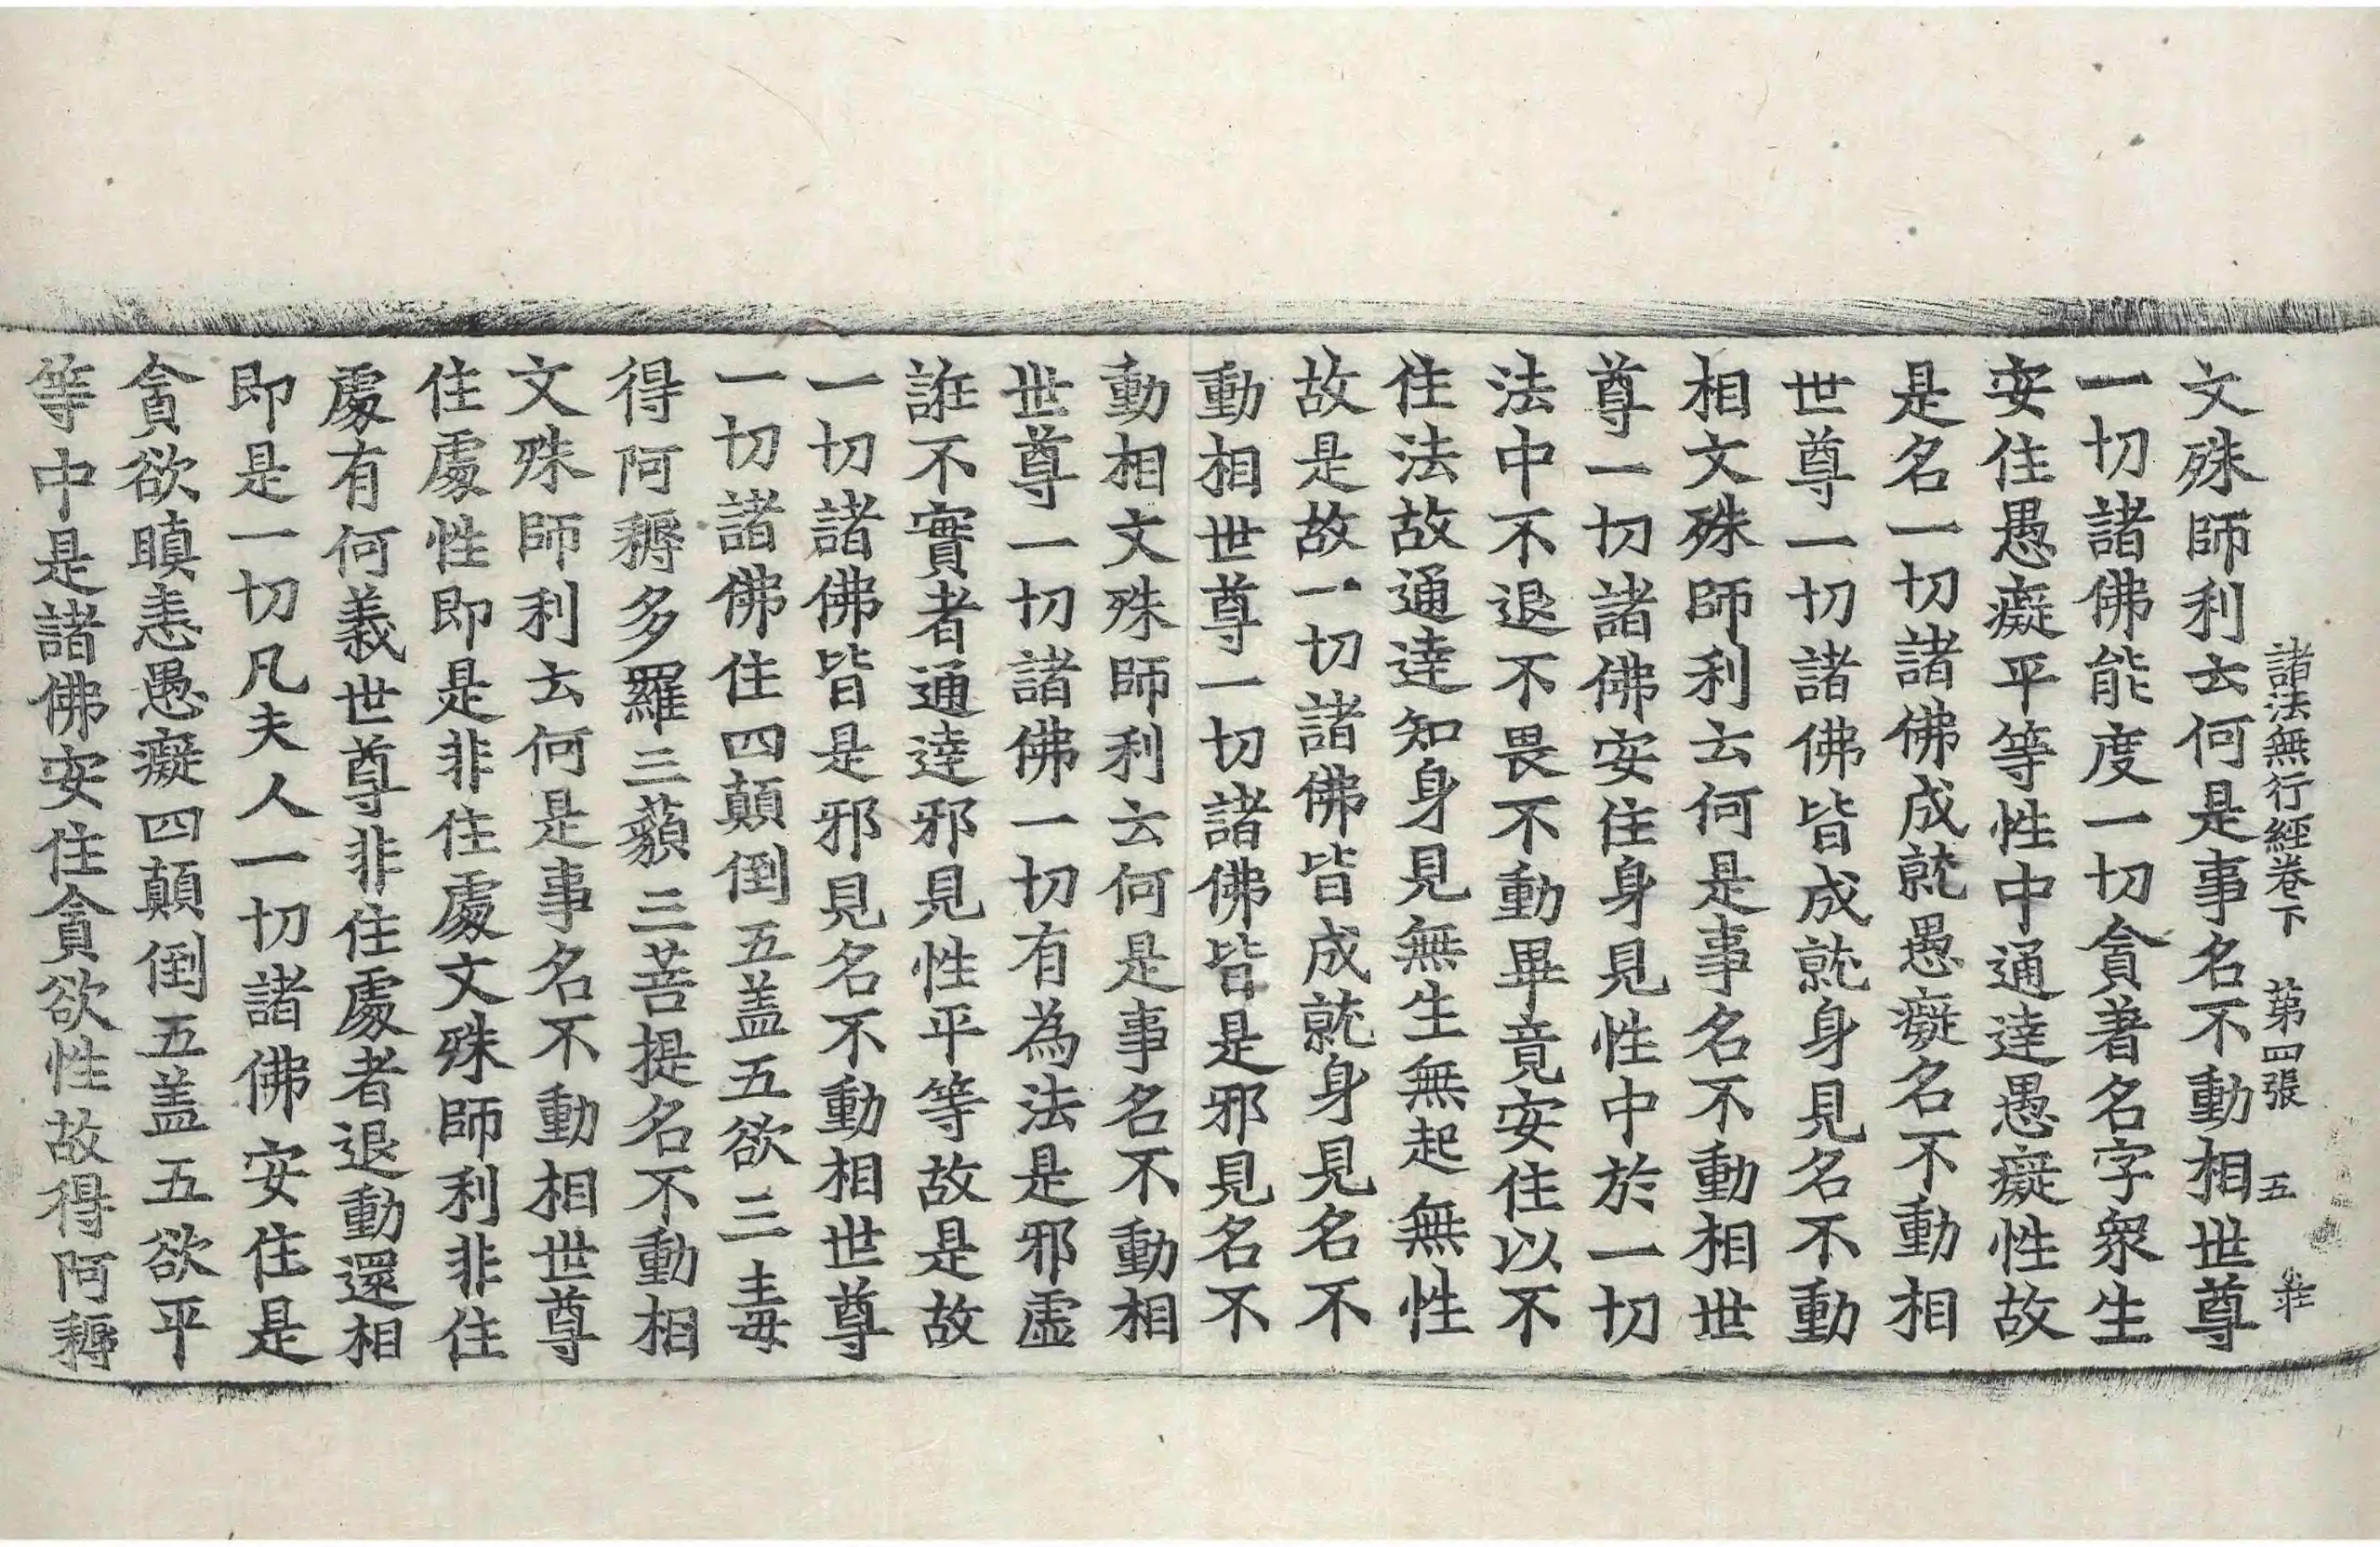 諸法無行經卷下 第四張 五 莊
文殊師利云何是事名不動相世尊
一切諸佛能度一切貪著名字衆生
安住愚癡平等性中通達愚癡性故
是名一切諸佛成就愚癡名不動相
世尊一切諸佛皆成就身見名不動
相文殊師利云何是事名不動相世
尊一切諸佛安住身見性中於一切
法中不退不畏不動畢竟安住以不
住法故通達知身見無生無起無性
故是故一切諸佛皆成就身見名不
動相世尊一切諸佛皆是邪見名不
動相文殊師利云何是事名不動相
世尊一切諸佛一切有為法是邪虛
誑不實者通達邪見性平等故是故
一切諸佛皆是邪見名不動相世尊
一切諸佛住四顛倒五盖五欲三毒
得阿耨多羅三藐三菩提名不動相
文殊師利云何是事名不動相世尊
住處性即是非住處文殊師利非住
處有何義世尊非住處者退動還相
即是一切凡夫人一切諸佛安住是
貪欲瞋恚愚癡四顛倒五盖五欲平
等中是諸佛安住貪欲性故得阿耨